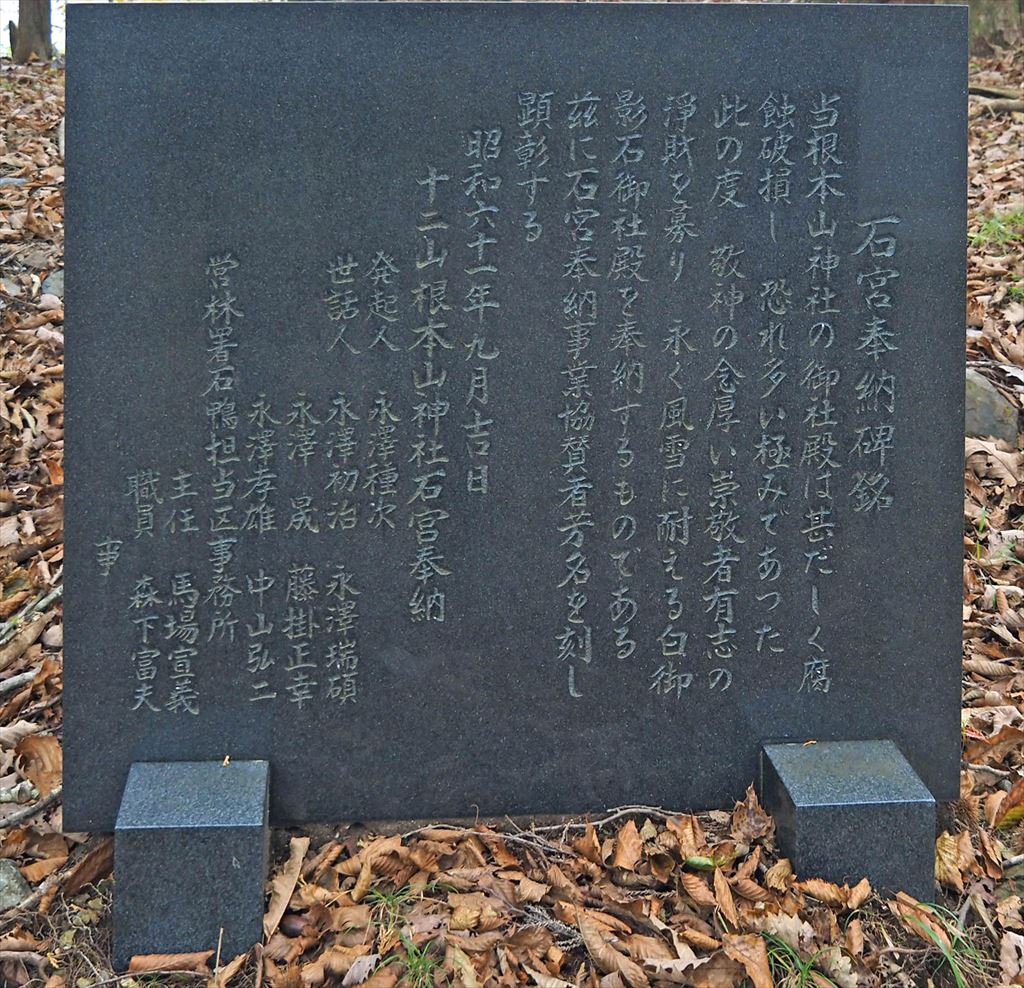 石宮奉納碑銘
当根本山神社の御社殿は甚だしく腐
蝕破損し 恐れ多い極みであつた
此の度 敬神の念厚い崇敬者有志の
淨財を募り 永く風雪に耐える白御
影石御社殿を奉納するものである
茲に石宮奉納事業協賛者芳名を刻し
顕彰する
昭和六十一年九月吉日
十二山根本山神社石宮奉納
発起人 永澤種次
世話人 永澤初治 永澤瑞碩
永澤 晟 藤掛正幸
永澤孝雄 中山弘二
営林署石鴨担当区事務所
主任 馬場宣義
職員 森下富夫